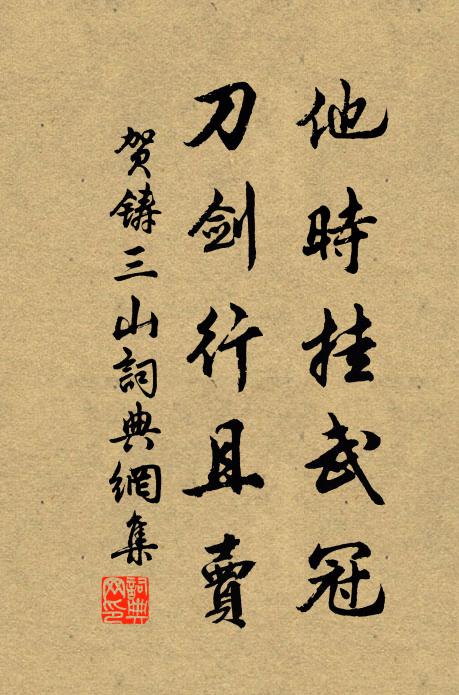 他時挂武冠
刀剑行且賣
贺鑄三山詞典網集
詞典
网印